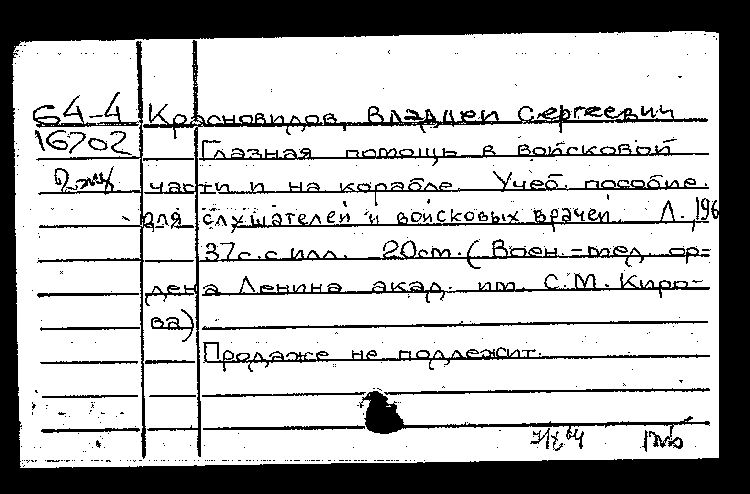 64-4 Красновидов, Владлен Сергеевич
16702 Глазная помощь в войсковой
части и на корабле. Учеб. пособие.
для слушателей и войсковых врачей. Л., 196
37с. с илл. 20см. (Воен.=мед. ор=
дена Ленина акад. им. С.М. Киро-
ва)
Продаже не подлежит.